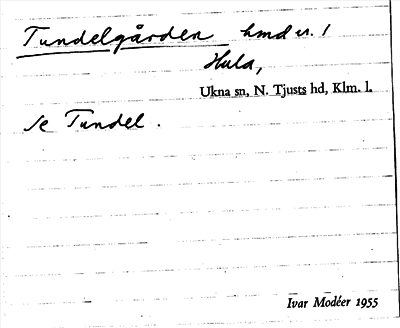 Tundelgården hmd nr. 1
Hula,
Ukna sn, N. Tjusts hd, Klm. l.
Se Tundel.
Ivar Modéer 1955